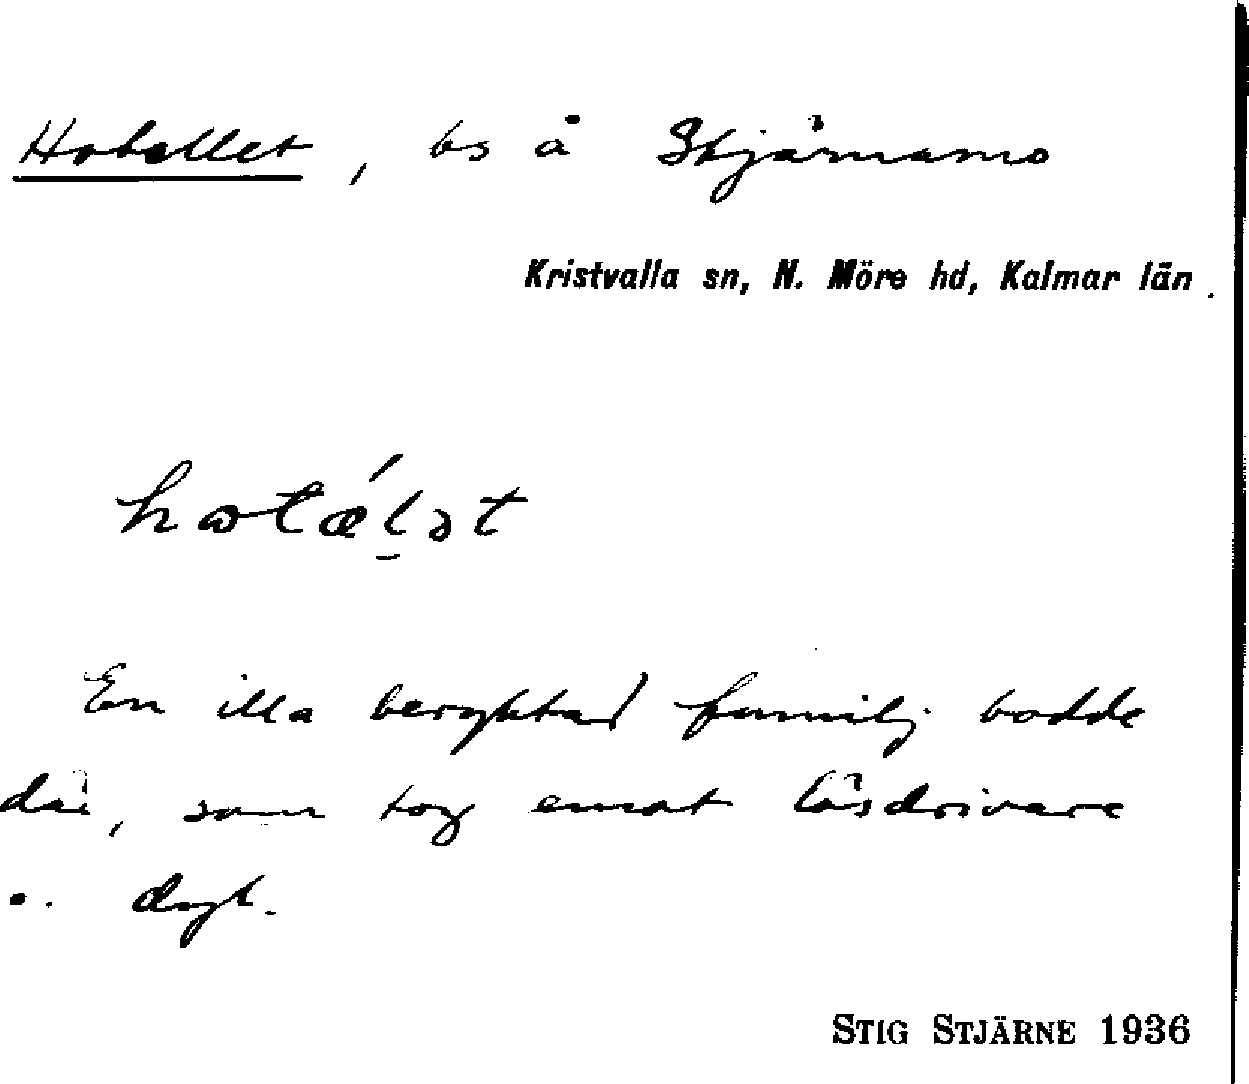 Hotellet, bs å Skjärnamo
Kristvalla sn, N. Möre hd, Kalmar län.
hɷtǽl̠ət
En illa beryktad familj bodde
där, som tog emot lösdrivare
o. dyl.
STIG STJÄRNE 1936